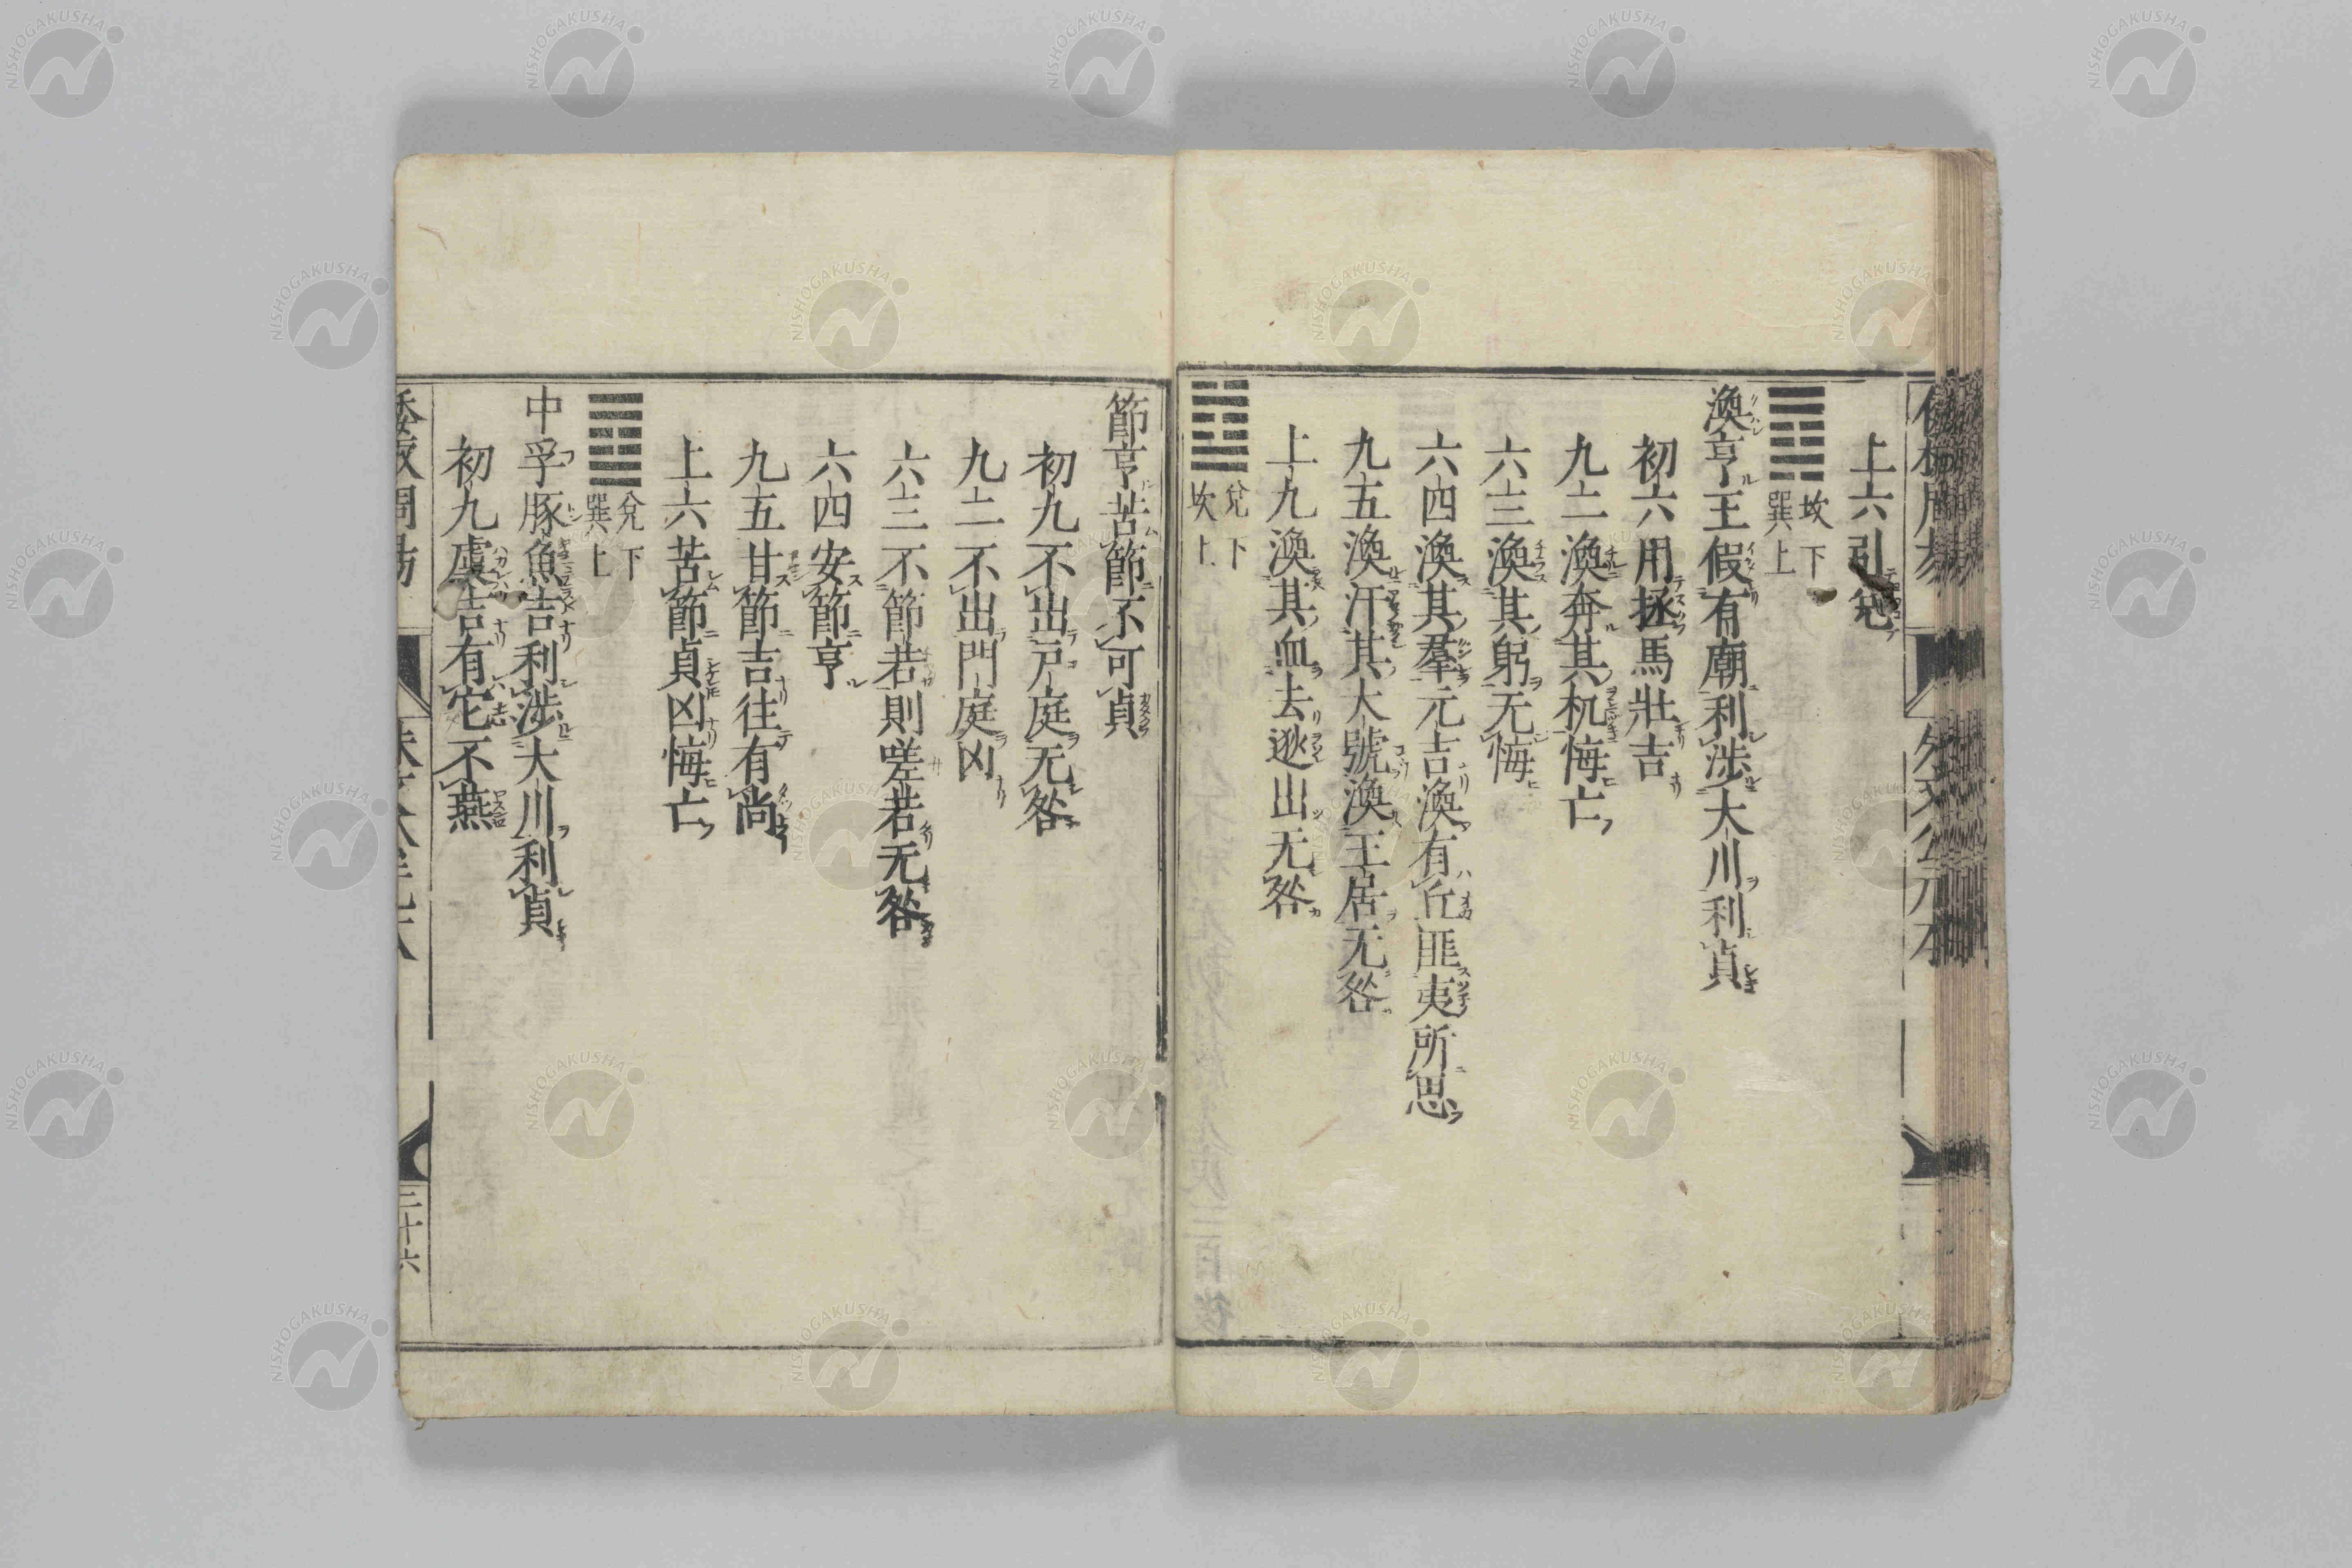 上六引兌
坎下
巽上
渙亨王假有廟利涉大川利貞
初六用拯馬壯吉
九二渙奔其机悔亡
六三渙其躬无悔
六四渙其羣元吉渙有丘匪夷所思
九五渙汗其大號渙王居无咎
上九渙其血去逖出无咎
兌下
坎上
節亨苦節不可貞
初九不出戸庭无咎
九二不出門庭凶
六三不節若則嗟若无咎
六四安節亨
九五甘節吉往有尚
上六苦節貞凶悔亡
兌下
巽上
中孚豚魚吉利涉大川利貞
初九虞吉有它不燕
二十六
NISHOGAKUSHA